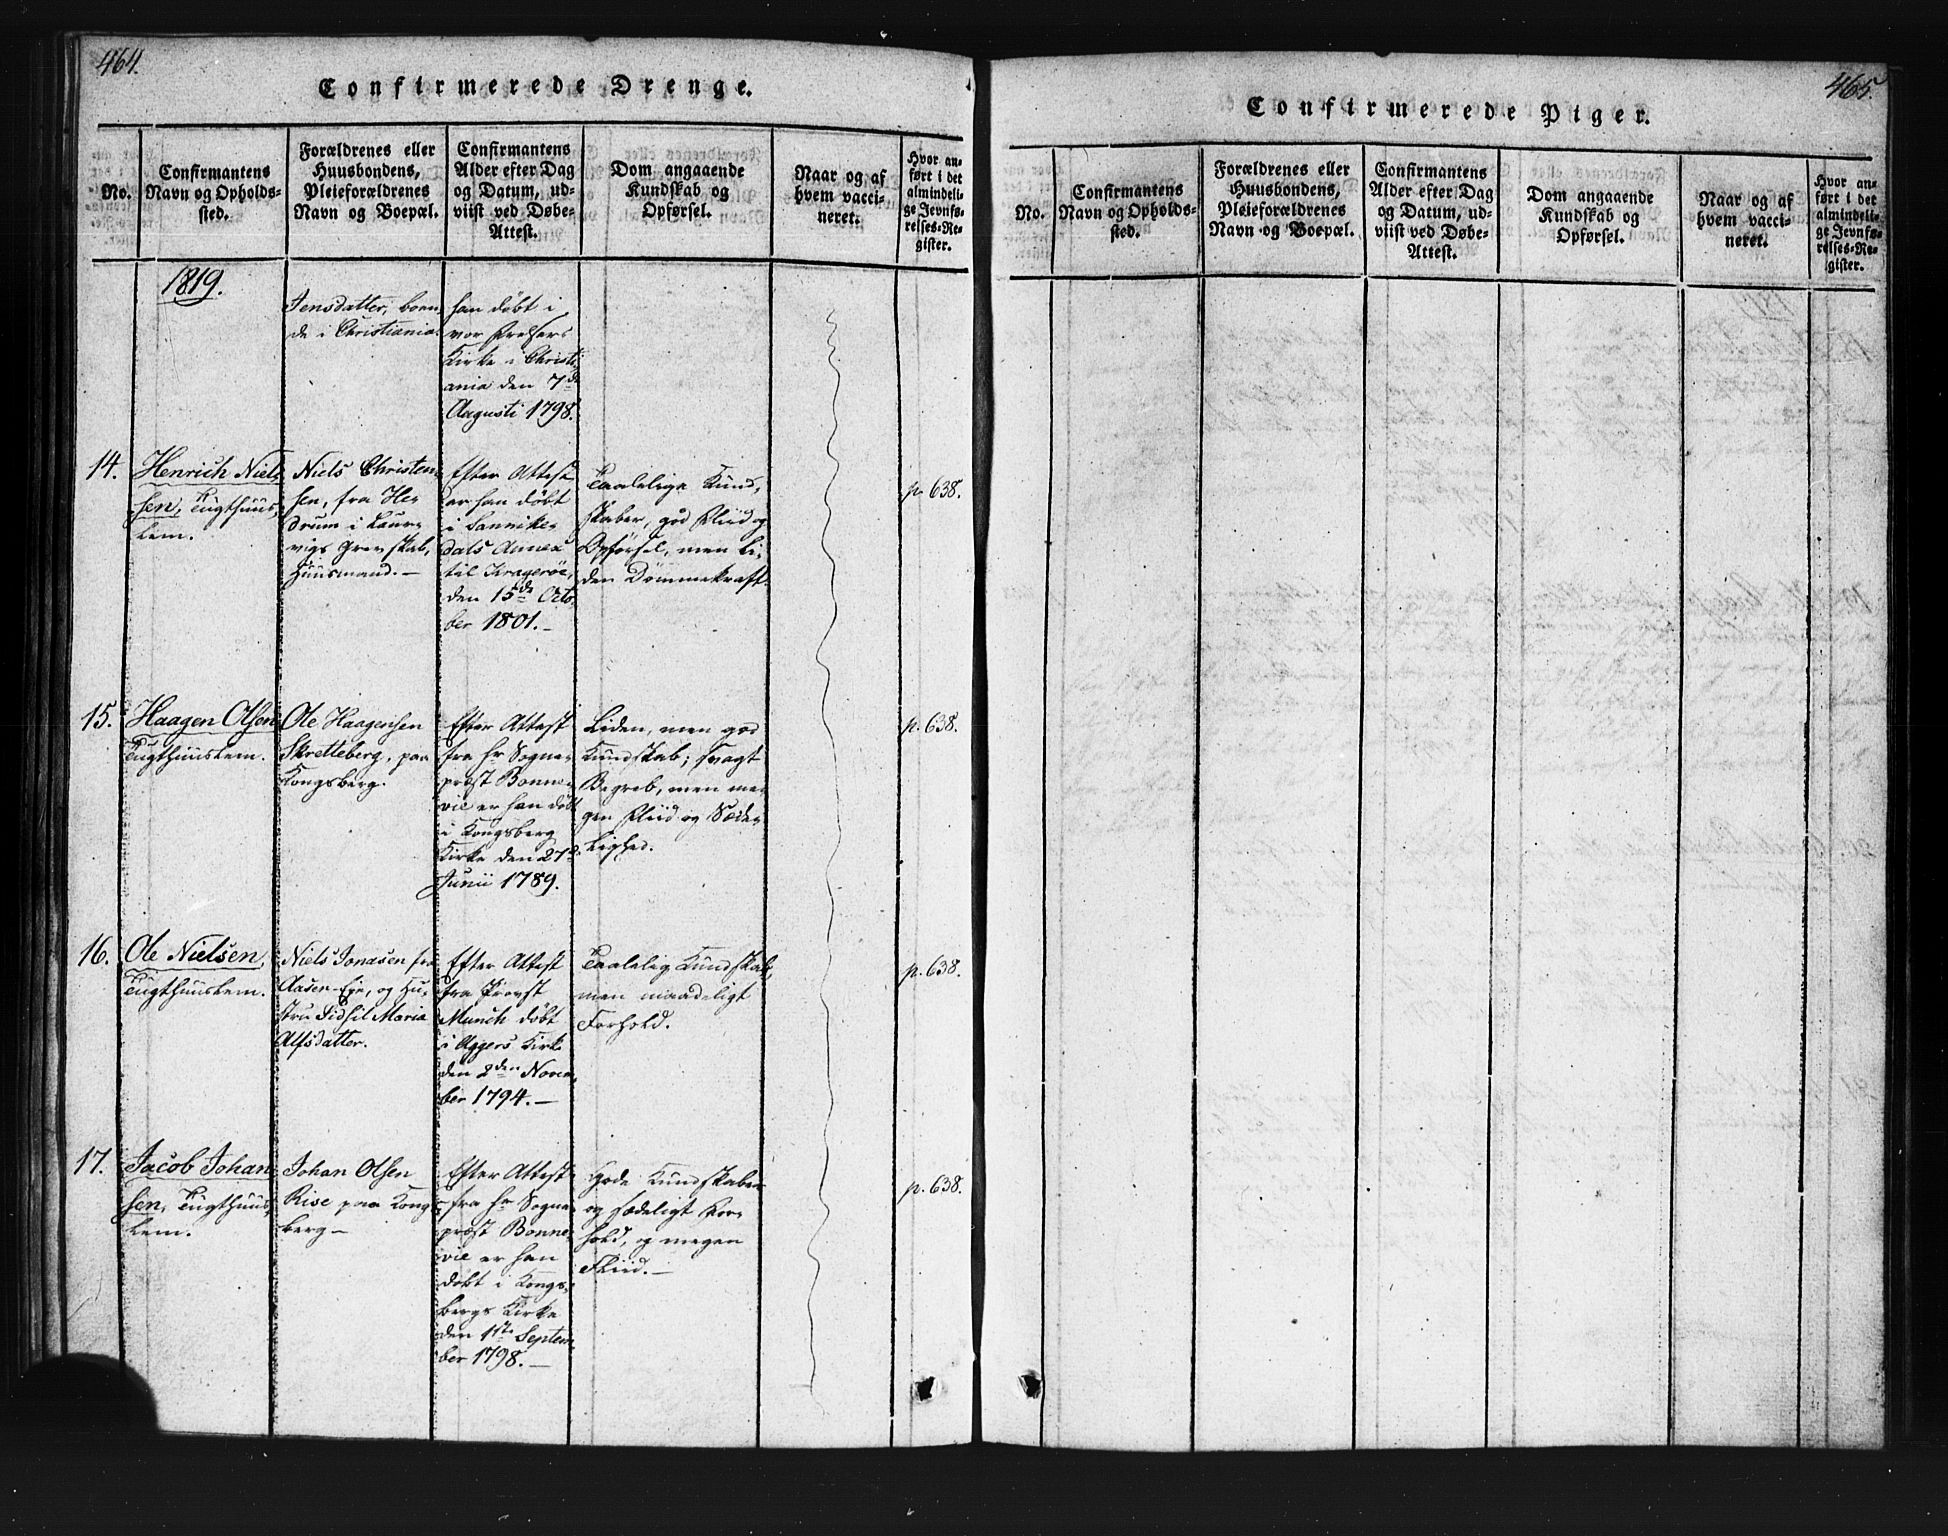 464.
Confirmerede Drenge.
No.
Confirmantens
Navn og Opholds-
sted.
Forældrenes eller
Huusbondens,
Pleieforældrenes
Navn og Boepæl.
Confirmantens
Alder efter Dag
og Datum, ud-
viist ved Døbe-
Attest.
Dom angaaende
Kundskab og
Opførsel.
Naar og af
hvem vacci-
neret.
Hvor an-
ført i det
almindeli-
ge Jevnfø-
relses-Re-
gister.
1819.
Jensdatter, boen-
de i Christiania.
han döbt i
vor Frelsers
Kirke i Christi-
ania den 7de
Augusti 1798.
14.
Henrich Niel-
sen, Tugthuus-
lem.
Niels Christen-
sen, fra He-
drum i Laur-
vigs Grevskab,
Huusmand. —
Efter Attest
er han döbt
i Sannike-
dals Annex
til Kragerøe,
den 15de Octo-
ber 1801. —
Taalelige Kund-
skaber, god Fliid og
Opförsel, men li-
den Dömmekraft.
p. 638.
15.
Haagen Olsen
Tugthuuslem.
Ole Haagensen
Skretteberg, paa
Kongsberg.
Efter Attest
fra Hr Sogne-
præst Bonne-
vie er han döbt
i Kongsberg
Kirke den 27de
Junii 1789.
Liden, men god
Kundskab; svagt
Begreb, men me-
gen Fliid og Sæde-
lighed.
p. 638.
16.
Ole Nielsen,
Tugthuuslem.
Niels Jonasen fra
Aasen-Eje, og Hu-
stru Sidsil Maria
Alfsdatter.
Efter Attest
fra Provst
Munch döbt
i Aggers Kirke
den 2den Novem-
ber 1794. —
Taalelig Kundskab,
men maadeligt
Forhold.
p. 638.
17.
Jacob Johan-
sen, Tugthuus-
lem.
Johan Olsen
Rise paa Kongs-
berg —
Efter Attest
fra Hr Sogne-
præst Bonne-
vie er han
döbt i Kongs-
bergs Kirke
den 1ste Septem-
ber 1798. —
Gode Kundskaber
og sædeligt For-
hold, og megen
Fliid. —
p. 638.
465.
Confirmerede Piger.
No.
Confirmantens
Navn og Opholds-
sted.
Forældrenes eller
Huusbondens,
Pleieforældrenes
Navn og Boepæl.
Confirmantens
Alder efter Dag
og Datum, ud-
viist ved Døbe-
Attest.
Dom angaaende
Kundskab og
Opførsel.
Naar og af
hvem vacci-
neret.
Hvor an-
ført i det
almindeli-
ge Jevnfø-
relses-Re-
gister.